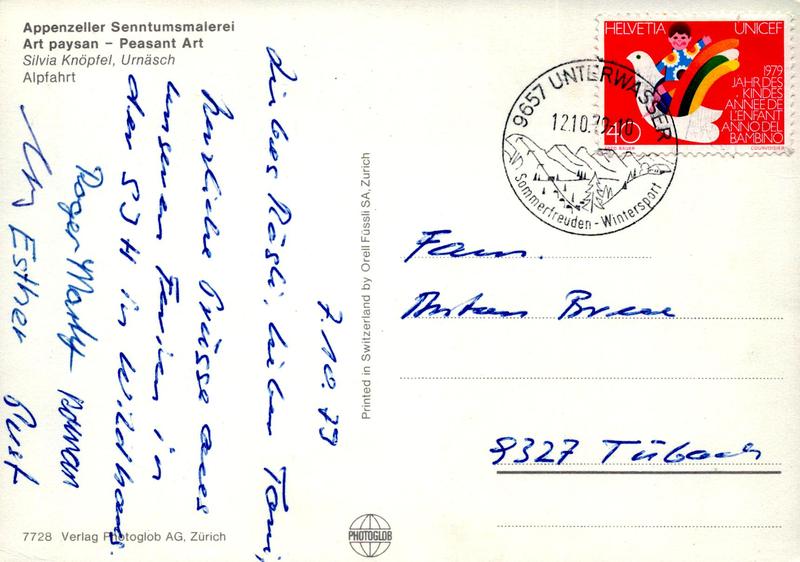 Appenzeller Senntumsmalerei
Art paysan – Peasant Art
Silvia Knöpfel, Urnäsch
Alpfahrt
7.10.79
Liebes Rösli, lieber Toni,
herzliche Grüsse aus
unseren Ferien in
der SJH in Wildhaus.
Roger Martht Roman
Esther Rust
7728 Verlag Photoglob AG, Zürich
Printed in Switzerland by Orell Füssli SA, Zürich
PHOTOGLOB
HELVETIA UNICEF
1979
JAHR DES
KINDES
ANNEE DE
L'ENFANT
ANNO DEL
BAMBINO
40
COURVOISIER
9657 UNTERWASSER
12.10.79-18
Sommerfreuden - Wintersport
Fam.
9327 Tübach